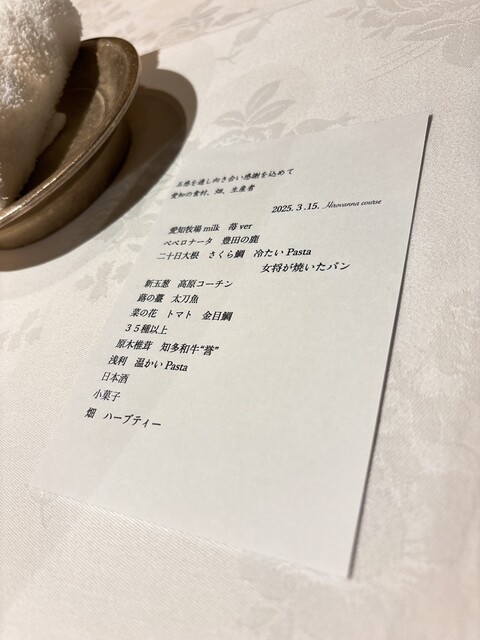 五感を通し向き合い感謝を込めて
愛知の食材、畑、生産者
2025. 3 .15. Hirovanna course
愛知牧場 milk 苺 ver
ペペロナータ 豊田の鹿
二十日大根 さくら鯛 冷たい Pasta
女将が焼いたパン
新玉葱 高原コーチン
蕗の薹 太刀魚
菜の花 トマト 金目鯛
３５種以上
原木椎茸 知多和牛“誉”
浅利 温かい Pasta
日本酒
小菓子
畑 ハーブティー